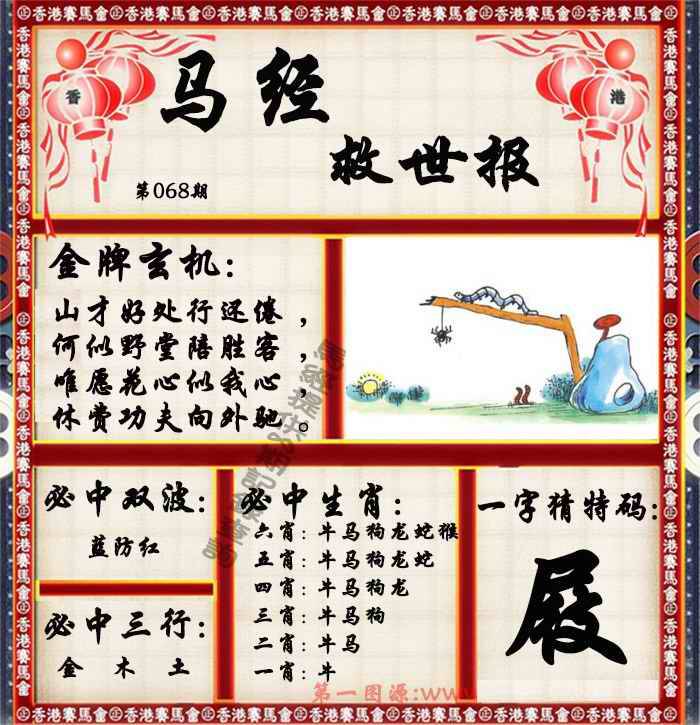 香港賽馬會
香 港
马经
救世报
第068期
金牌玄机:
山才好处行还倦，
何似野堂陪胜客，
唯愿花心似我心，
休费功夫向外驰。
必中双波:
蓝防红
必中三行:
金 木 土
必中生肖:
六肖: 牛马狗龙蛇猴
五肖: 牛马狗龙蛇
四肖: 牛马狗龙
三肖: 牛马狗
二肖: 牛马
一肖: 牛
一字猜特码:
屐
第一图源:www